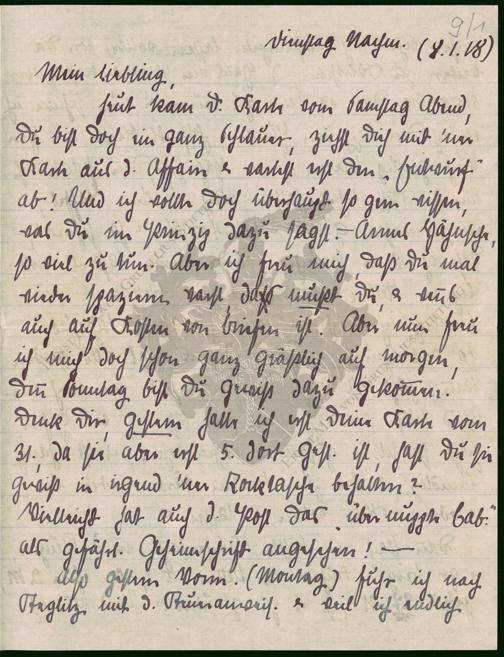 9/1
Dienstag Nachm. (8.1.18)
Mein Liebling,
heut kam d. Karte vom Samstag Abend,
Du bist doch ein ganz Schlauer, ziehst Dich mit 'ner
Karte aus d. Affaire & wartest erst den „Entwurf"
ab! Und ich wollte doch überhaupt so gern wissen,
was Du im Prinzip dazu sagst. – Armes
so viel zu tun. Aber ich freu mich, daß Du mal
wieder spazieren warst das mußt Du, &
auch auf Kosten von Briefen ist. Aber nun freu
ich mich doch schon ganz gräßlich auf morgen,
den Sonntag bist Du gewiß dazu gekommen.
Denk Dir, gestern hatte ich erst Deine Karte vom
31, da sie aber erst 5. dort gest. ist, hast Du sie
gewiß in irgend 'ner Rocktasche behalten?
Vielleicht hat auch d. Post das
als gefährl. Geheimschrift angesehen! —
Also gestern Vorm. (Montag) fuhr ich nach
Steglitz mit d. & weil ich endlich